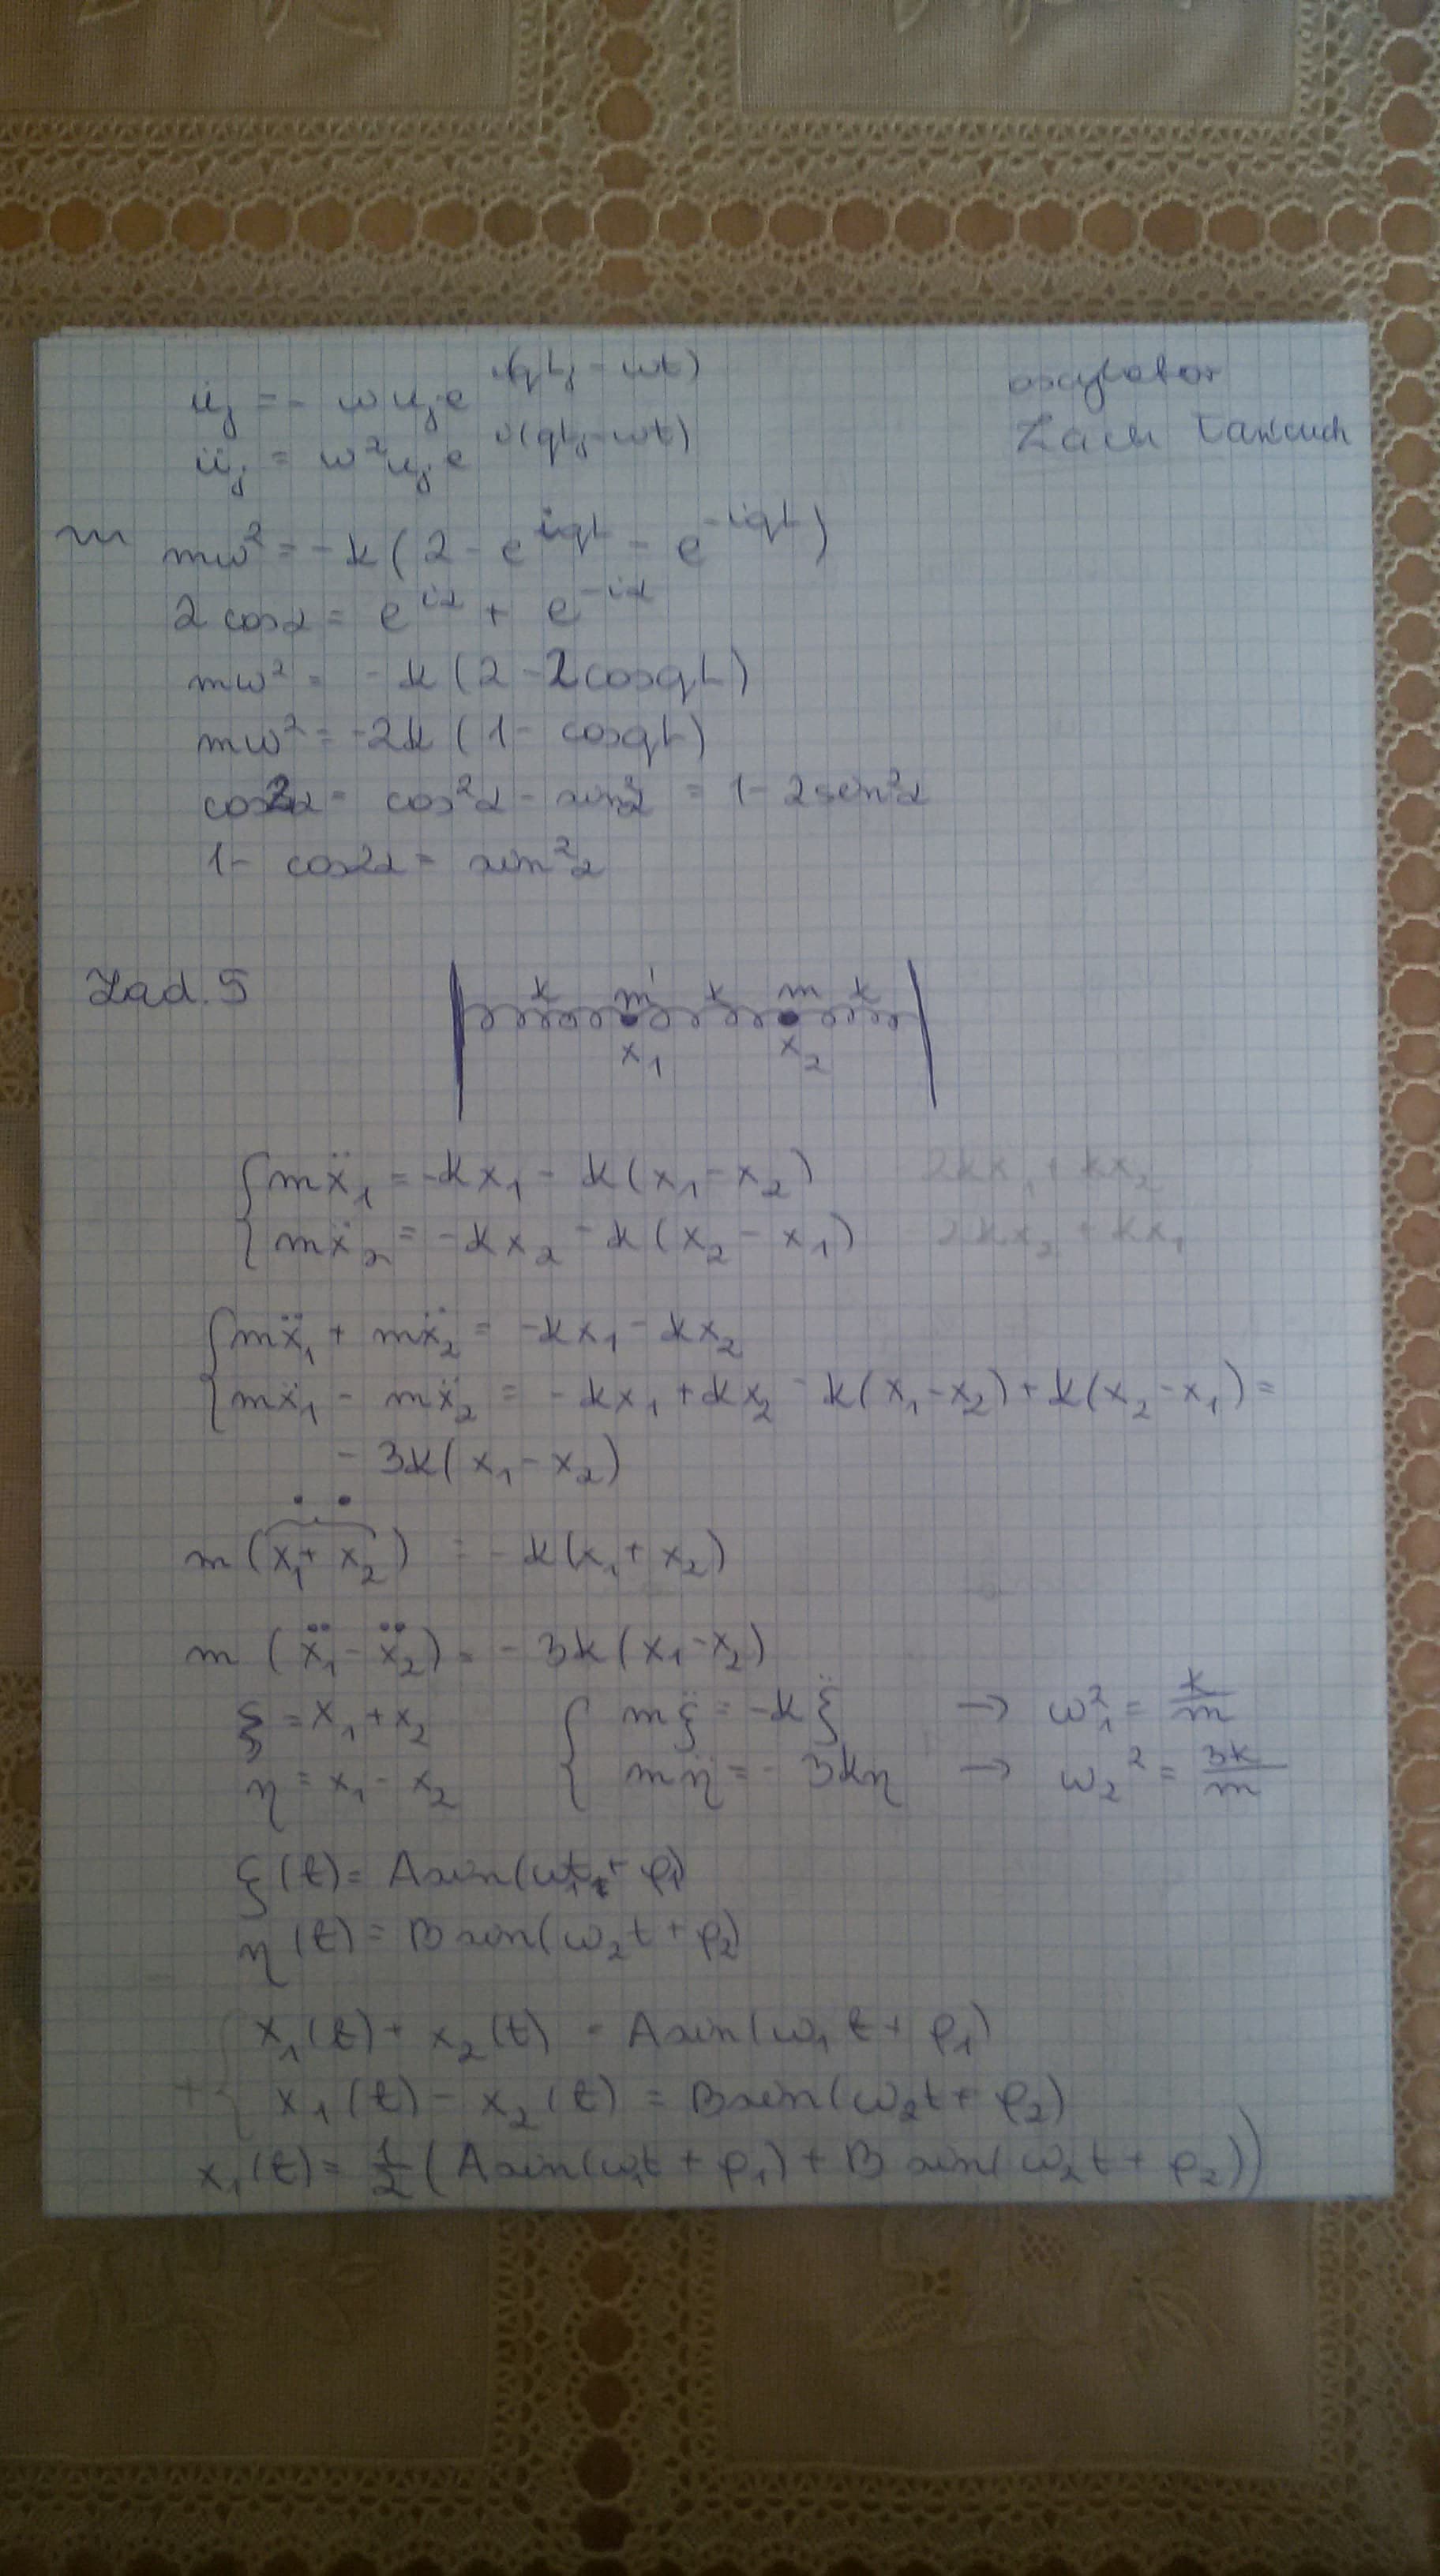 u̇ⱼ = - ω uⱼ e^{i(qLⱼ - ωt)}
oscylator
üⱼ = ω² uⱼ e^{i(qLⱼ - ωt)}
m mω² = -k(2 - e^{iqL} - e^{-iqL})
2 cosα = e^{iα} + e^{-iα}
mω² = -k(2 - 2cosqL)
mω² = -2k(1 - cosqL)
cos2α = cos²α - sin²α = 1 - 2sin²α
1 - cos2α = sin²α
Zad. 5
k m k m k
x₁ x₂
mẍ₁ = -kx₁ - k(x₁ - x₂) -2kx₁ + kx₂
mẍ₂ = -kx₂ - k(x₂ - x₁) -2kx₂ + kx₁
mẍ₁ + mẍ₂ = -kx₁ - kx₂
mẍ₁ - mẍ₂ = -kx₁ + kx₂ - k(x₁ - x₂) + k(x₂ - x₁) =
- 3k(x₁ - x₂)
. .
m(x₁ + x₂) = -k(x₁ + x₂)
m(ẍ₁ - ẍ₂) = -3k(x₁ - x₂)
ξ = x₁ + x₂ mξ̈ = -kξ → ω₁² = k/m
η = x₁ - x₂ mη̈ = -3kη → ω₂² = 3k/m
ξ(t) = A sin(ω₁t + φ₁)
η(t) = B sin(ω₂t + φ₂)
x₁(t) + x₂(t) = A sin(ω₁t + φ₁)
+ x₁(t) - x₂(t) = B sin(ω₂t + φ₂)
x₁(t) = 1/2 (A sin(ω₁t + φ₁) + B sin(ω₂t + φ₂))